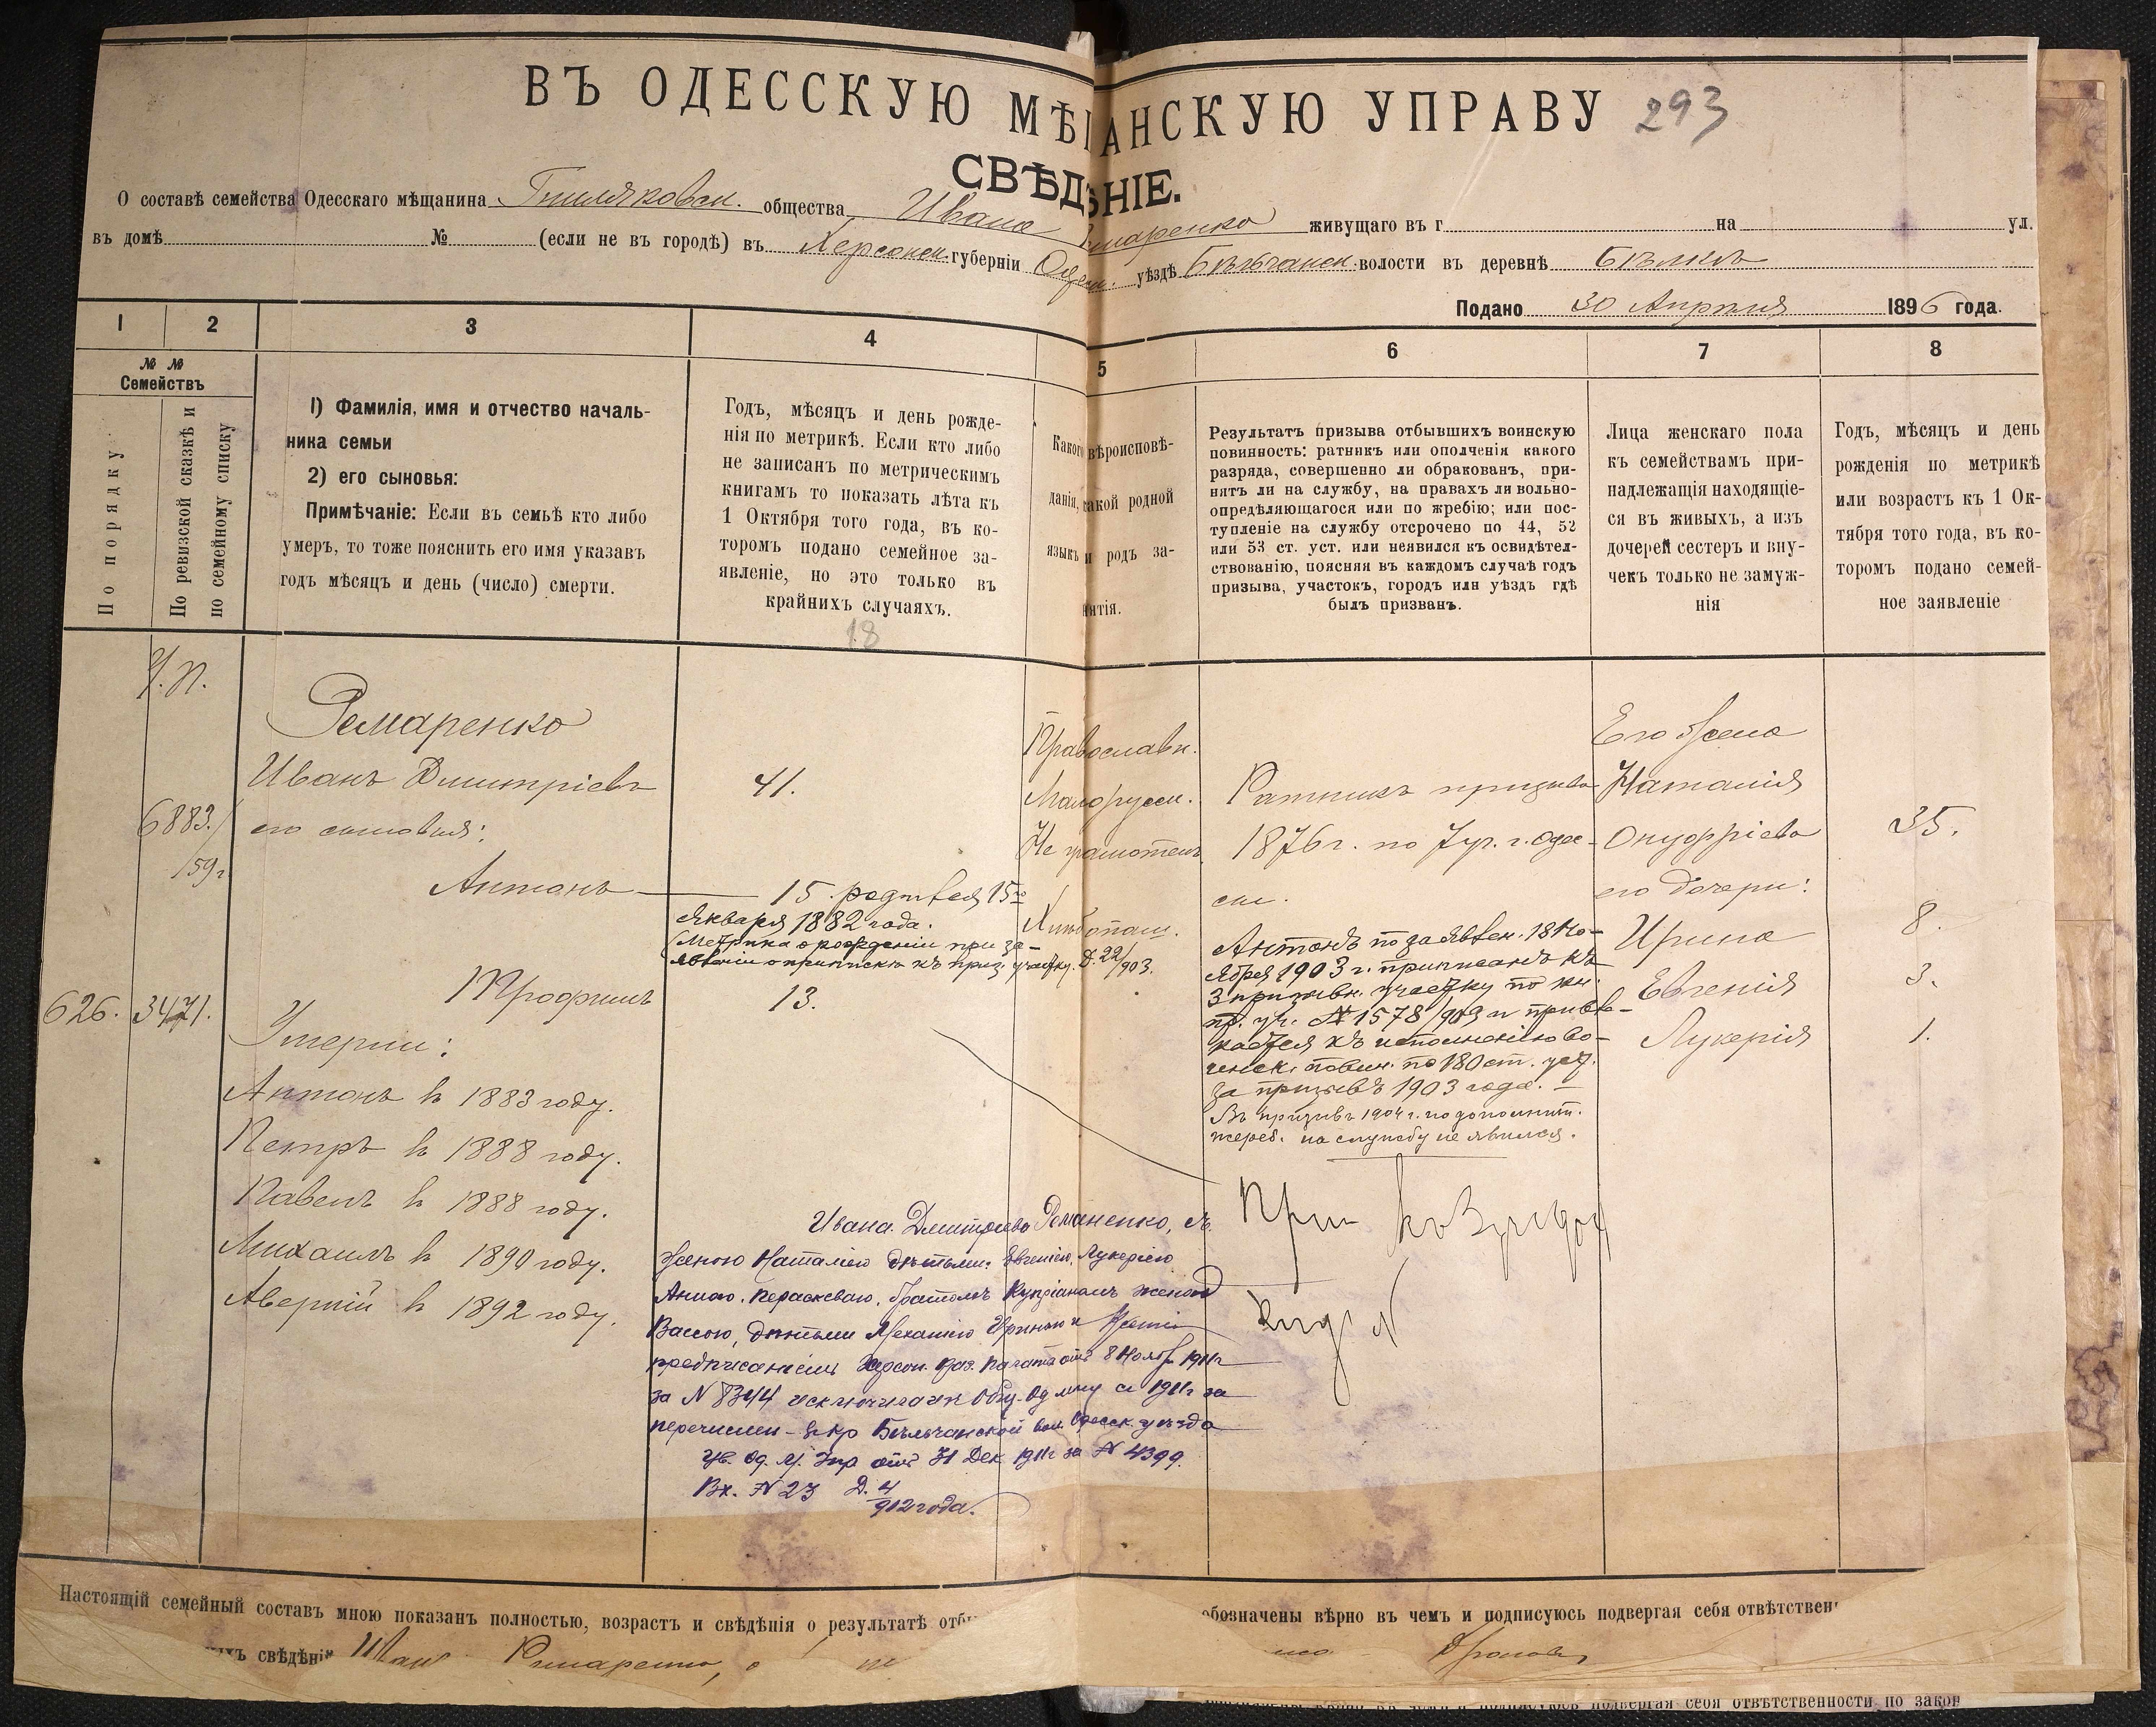 ВЪ ОДЕССКУЮ МѢ АНСКУЮ УПРАВУ 293
СВѢДѢНІЕ.
О составѣ семейства Одесскаго мѣщанина общества Ивана маренко живущаго въ г на ул.
въ домѣ № (если не въ городѣ) въ Херсонск. губерніи Одесск. уѣздѣ Бѣльчанск. волости въ деревнѣ Бѣлкѣ
Подано 30 Апрѣля 1896 года.
1 2 3 4 5 6 7 8
№ № Семействъ
По порядку
По ревизской сказкѣ и
по семейному списку
1) Фамилія, имя и отчество началь-
ника семьи
2) его сыновья:
Примѣчаніе: Если въ семьѣ кто либо
умеръ, то тоже пояснить его имя указавъ
годъ мѣсяцъ и день (число) смерти.
Годъ, мѣсяцъ и день рожде-
нія по метрикѣ. Если кто либо
не записанъ по метрическимъ
книгамъ то показать лѣта къ
1 Октября того года, въ ко-
торомъ подано семейное за-
явленіе, но это только въ
крайнихъ случаяхъ.
18
Какого вѣроисповѣ-
данія, какой родной
языкъ и родъ за-
нятія.
Результатъ призыва отбывшихъ воинскую
повинность: ратникъ или ополченія какого
разряда, совершенно ли обракованъ, при-
нятъ ли на службу, на правахъ ли вольно-
опредѣляющагося или по жребію; или пос-
тупленіе на службу отсрочено по 44, 52
или 53 ст. уст. или неявился къ освидѣтел-
ствованію, поясняя въ каждомъ случаѣ годъ
призыва, участокъ, городъ или уѣздъ гдѣ
былъ призванъ.
Лица женскаго пола
къ семействамъ при-
надлежащія находящіе-
ся въ живыхъ, а изъ
дочерей сестеръ и вну-
чекъ только не замуж-
нія
Годъ, мѣсяцъ и день
рожденія по метрикѣ
или возрастъ къ 1 Ок-
тября того года, въ ко-
торомъ подано семей-
ное заявленіе
Ремаренко
Иванъ Дмитріевъ 41.
6883./
159г
его сыновья:
Антонъ 15 родився 15го
Января 1882 года.
(Метрика о рожденіи при за-
явленіи о припискѣ къ приз. участку. Д. 22/903.
626. 3471.
Трофимъ 13.
Умерли:
Антонъ въ 1883 году.
Петръ въ 1888 году.
Павелъ въ 1888 году.
Михаилъ въ 1890 году.
Аверкій въ 1892 году.
Православн.
Малорусск.
Не грамотенъ
Хлѣбопаш.
Ратникъ призыва
1876 г. по 7 уч. г. Одес-
сы.
Антонъ по заявлен. 18 Но-
ября 1903 г. приписанъ къ
3 призывн. участку по кн.
пр. уч. № 1578/903 и привле-
кается къ исполненію во-
инск. повин. по 180 ст. уст.
за призывъ 1903 года.
Въ призывъ 1904 г. по дополнит.
жереб. на службу не явился.
Его жена
Наталія
Онуфріева 35.
его дочери:
Ирина 8.
Евгенія 3.
Лукерія 1.
Ивана Дмитріева Романенко, съ
женою Наталіею дѣтьми: Евгеніею, Лукеріею
Анною, Параскевою, братомъ Купріаномъ женою
Вассою, дѣтьми Меланіею Ириною и
предписаніемъ Херсон. Каз. Палаты отъ 8 Нояб 1911г
за № 8344 исключила изъ Общ. Од мѣщ съ 1911г за
перечислен въ кр Бѣльчанской вол. Одесск. уѣзда
ув. Од. М. Упр отъ 31 Дек 1911г за № 4399.
Вх. № 23 Д. 4/912 года.
Настоящій семейный составъ мною показанъ полностью, возрастъ и свѣдѣнія о результатѣ отбы
обозначены вѣрно въ чемъ и подписуюсь подвергая себя отвѣтствен
ихъ свѣдѣні Иван Римаренко, а не
подвергая себя отвѣтственности по закон